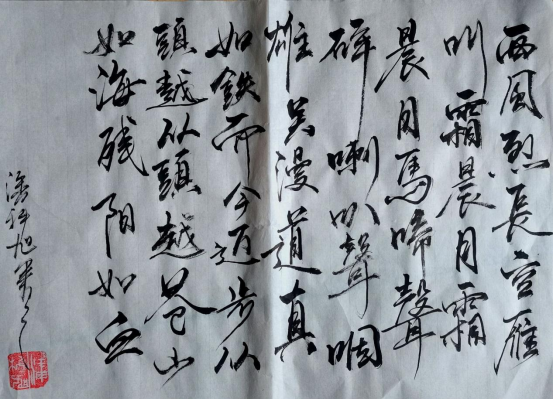 西风烈长空雁
叫霜晨月霜
晨月馬蹄聲
碎喇叭聲咽
雄关漫道真
如鉄而今迈步从
頭越从頭越苍山
如海残阳如血